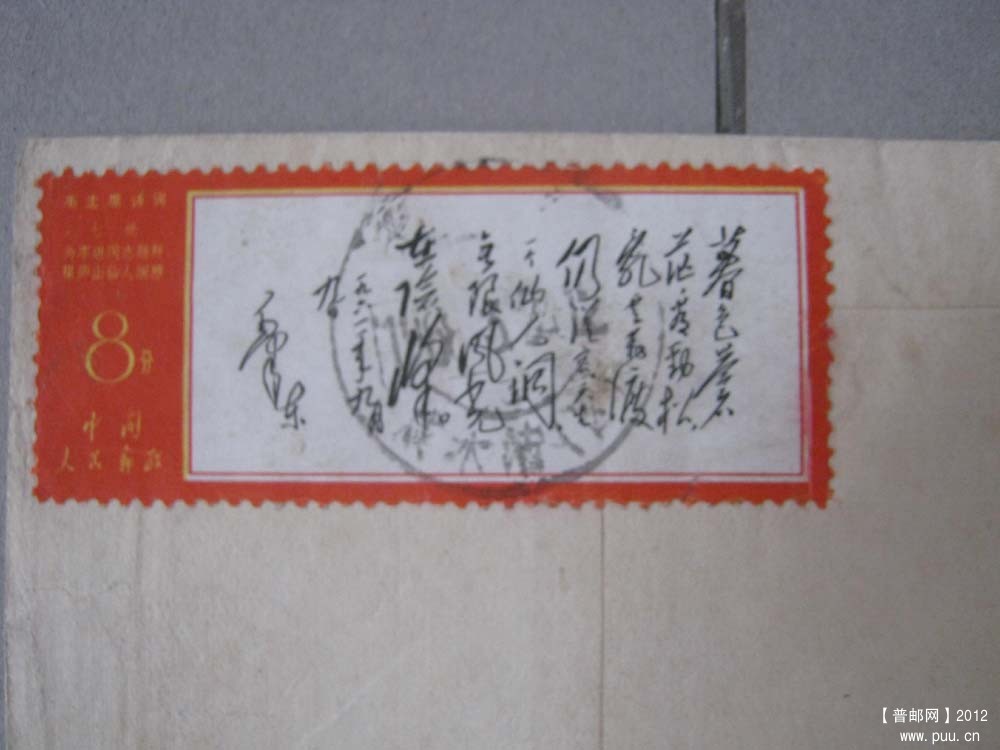 毛主席诗词
七绝
为李进同志题所
摄庐山仙人洞照
8分
中国
人民邮政
暮色苍
茫看劲松
乱云飞渡
仍从容天生
一个仙人洞
无限风光
在险峰
一九六一年九月
九日
毛泽东
【普邮网】2012
www.puu.cn